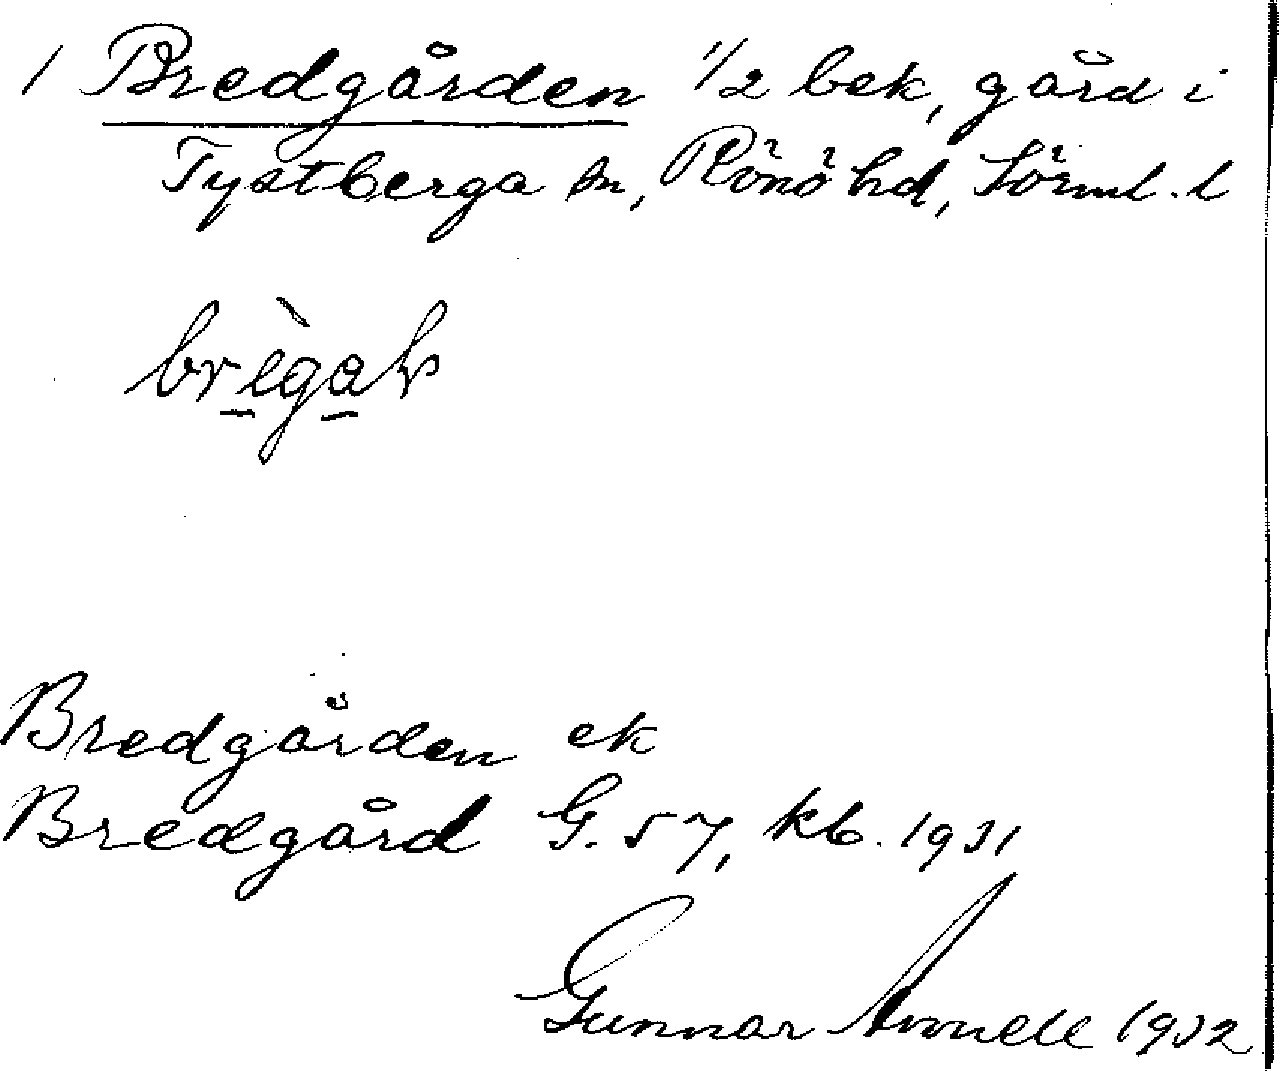 1 Bredgården 1/2 bek, gård i
Tystberga sn, Rönö hd, Sörml. l
Bredgården ek
Bredgård G. 57, kb. 1931
Gunnar 1932